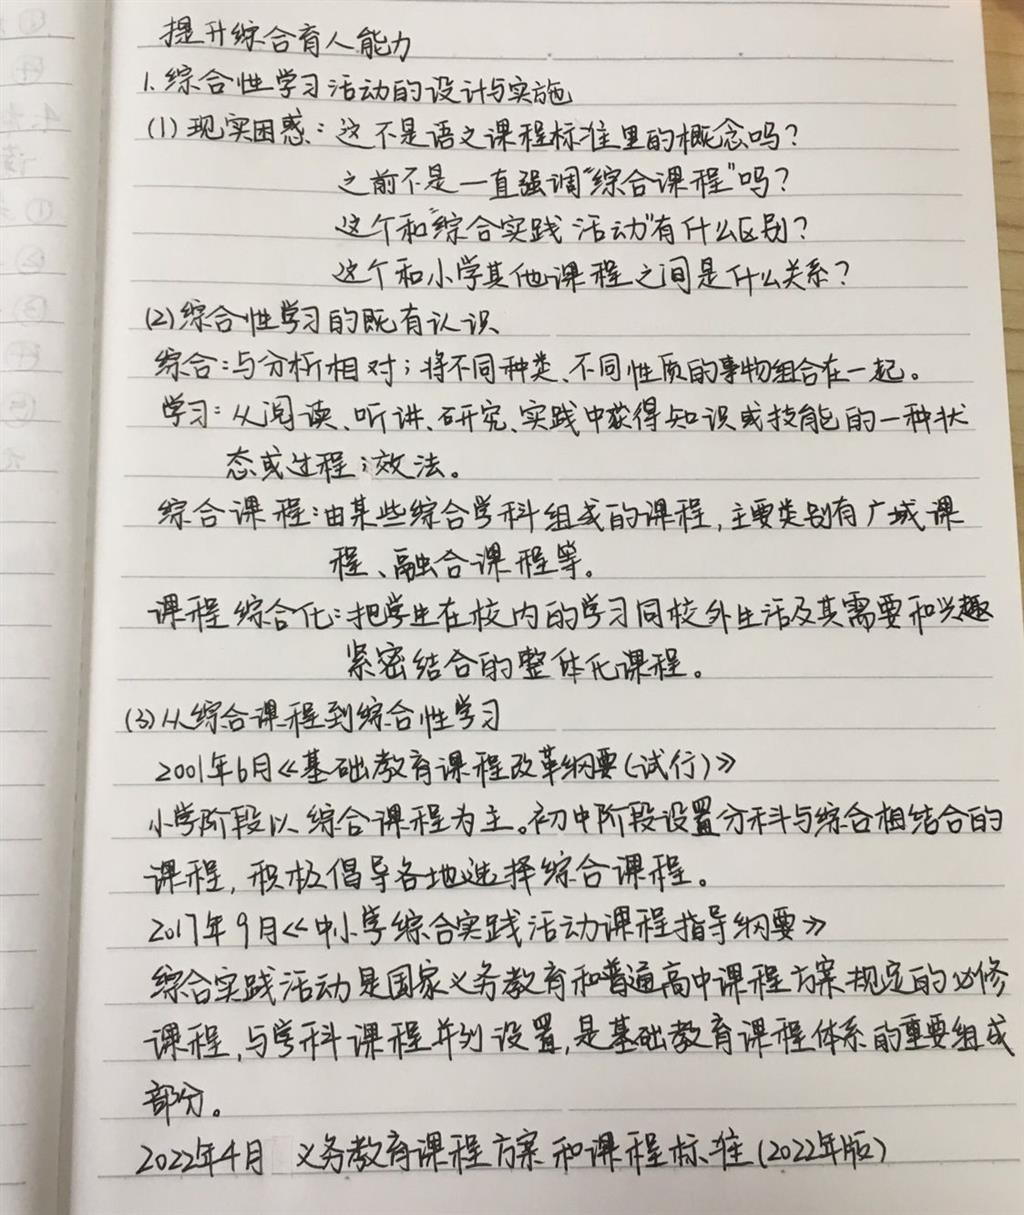 提升综合育人能力
1.综合性学习活动的设计与实施
(1)现实困惑：这不是语文课程标准里的概念吗？
之前不是一直强调"综合课程"吗？
这个和"综合实践活动"有什么区别？
这个和小学其他课程之间是什么关系？
(2)综合性学习的既有认识
综合：与分析相对；将不同种类、不同性质的事物组合在一起。
学习：从阅读、听讲、研究、实践中获得知识或技能的一种状
态或过程；效法。
综合课程：由某些综合学科组成的课程，主要类别有广域课
程、融合课程等。
课程综合化：把学生在校内的学习同校外生活及其需要和兴趣
紧密结合的整体化课程。
(3)从综合课程到综合性学习
2001年6月《基础教育课程改革纲要(试行)》
小学阶段以综合课程为主。初中阶段设置分科与综合相结合的
课程，积极倡导各地选择综合课程。
2017年9月《中小学综合实践活动课程指导纲要》
综合实践活动是国家义务教育和普通高中课程方案规定的必修
课程，与学科课程并列设置，是基础教育课程体系的重要组成
部分。
2022年4月 义务教育课程方案和课程标准(2022年版)